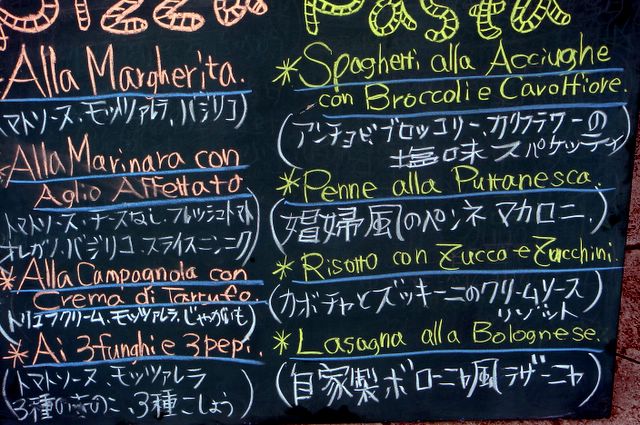 Pizza
*Alla Margherita.
マトソース、モッツァレラ、バジリコ)
*Alla Marinara con
Aglio Affettato
トマトソース、チーズなし、フレッシュトマト
オレガノ、バジリコ、スライスニンニク)
*Alla Campagnola con
Crema di Tartufo
(トリュフクリーム、モッツァレラ、じゃがいも)
*Ai 3 funghi e 3 pepi.
(トマトソース、モッツァレラ
3種のきのこ、3種こしょう)
Pasta
*Spaghetti alla Acciughe
con Broccoli e Cavolfiore.
(アンチョビ、ブロッコリー、カリフラワーの
塩味スパゲッティ)
*Penne alla Puttanesca.
(娼婦風のペンネマカロニ.)
*Risotto con Zucca e Zucchini.
(カボチャとズッキーニのクリームソース
リゾット)
*Lasagna alla Bolognese.
(自家製ボローニャ風ラザーニャ)